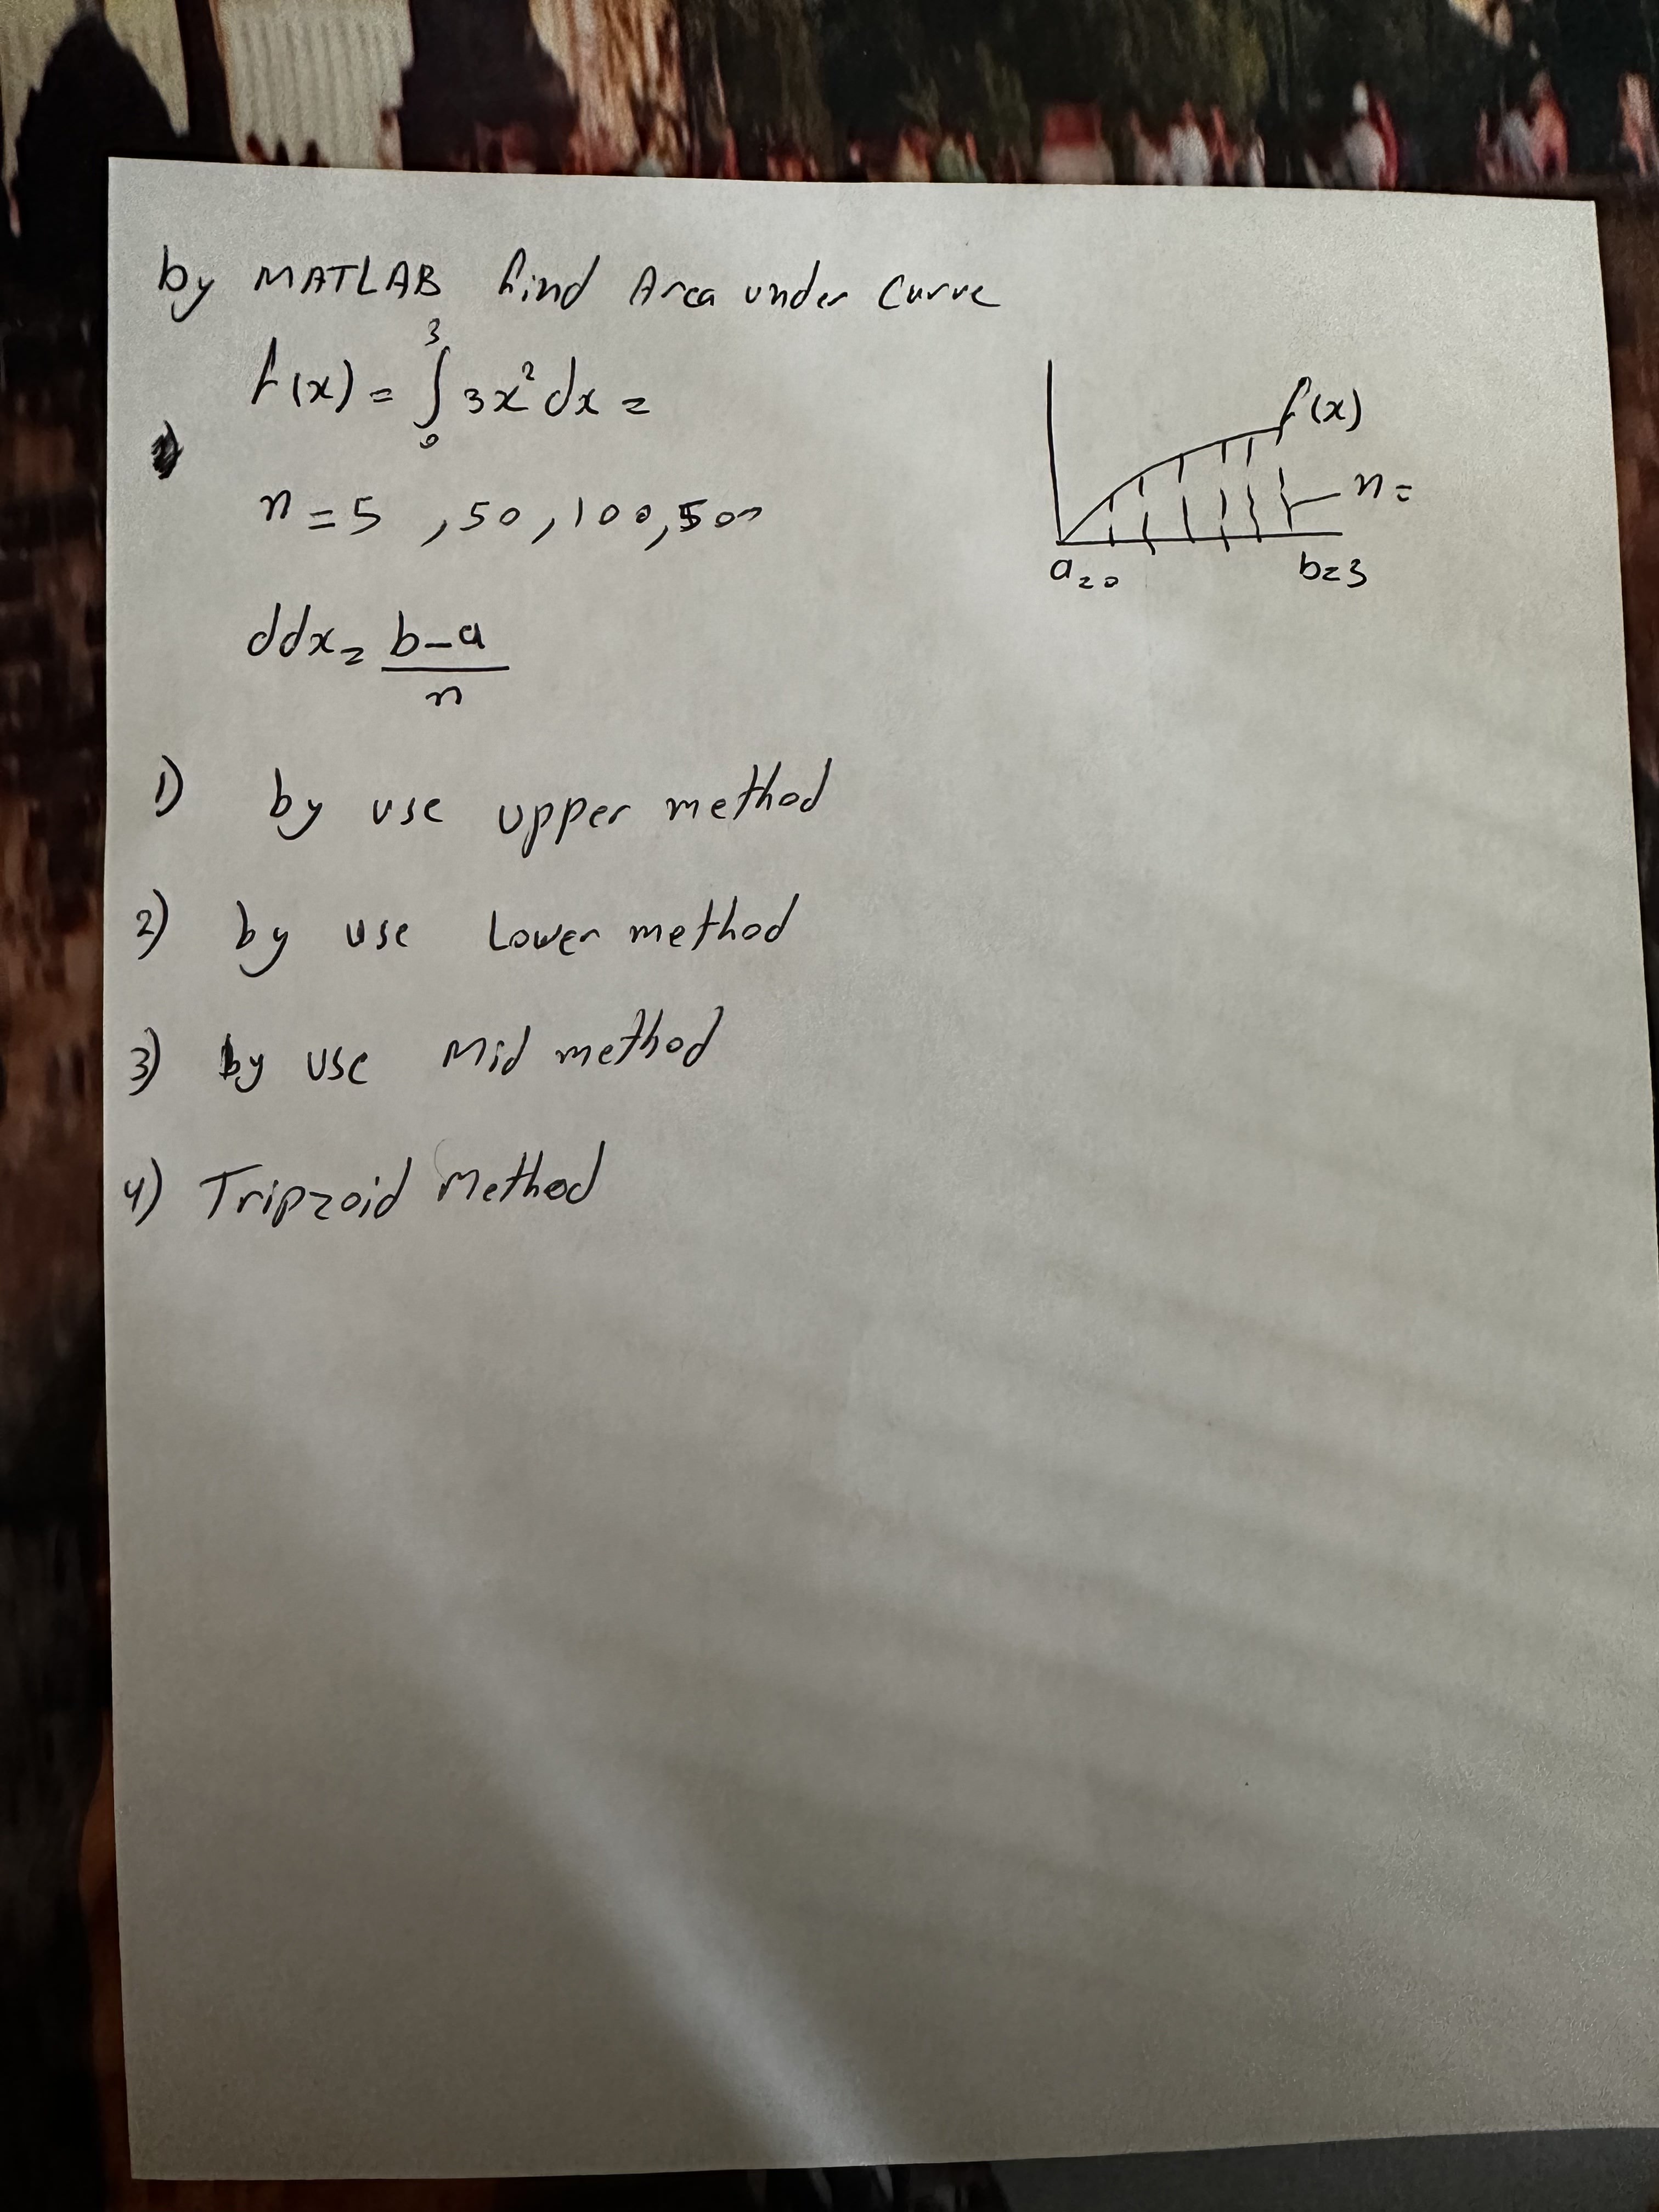 by MATLAB find Area under curve
f(x) = ∫₀³ 3x² dx =
n = 5 , 50 , 100, 500
ddx = (b-a)/n
f(x)
n =
a=0
b=3
1) by use upper method
2) by use Lower method
3) by use Mid method
4) Tripzoid Method